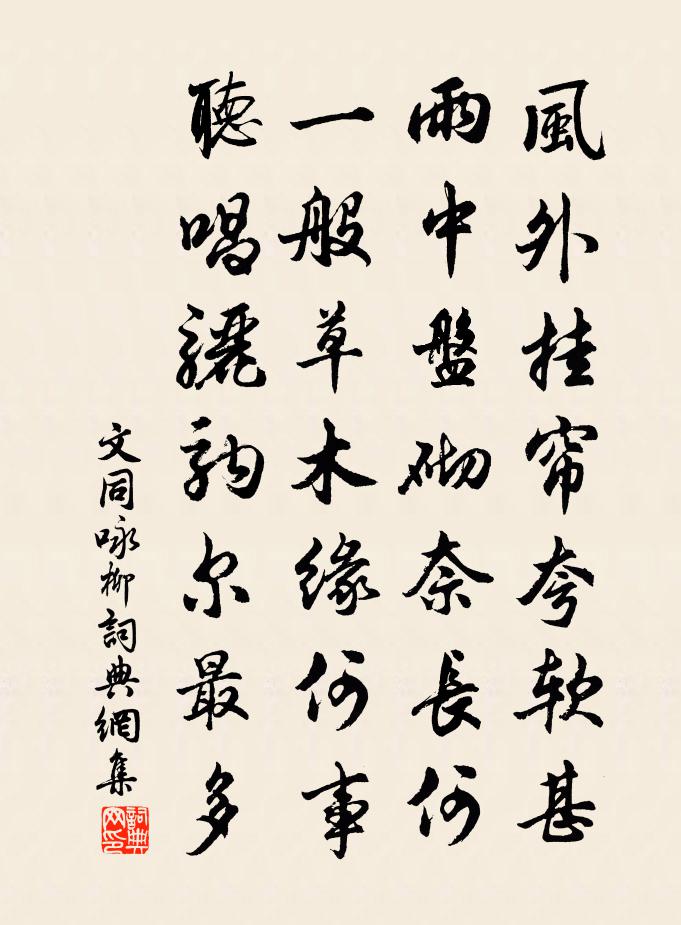 風外挂帘夸軟甚
雨中盤砌奈長何
一般草木緣何事
聴唱驪駒尔最多
文同咏柳詞典網集
詞典网印